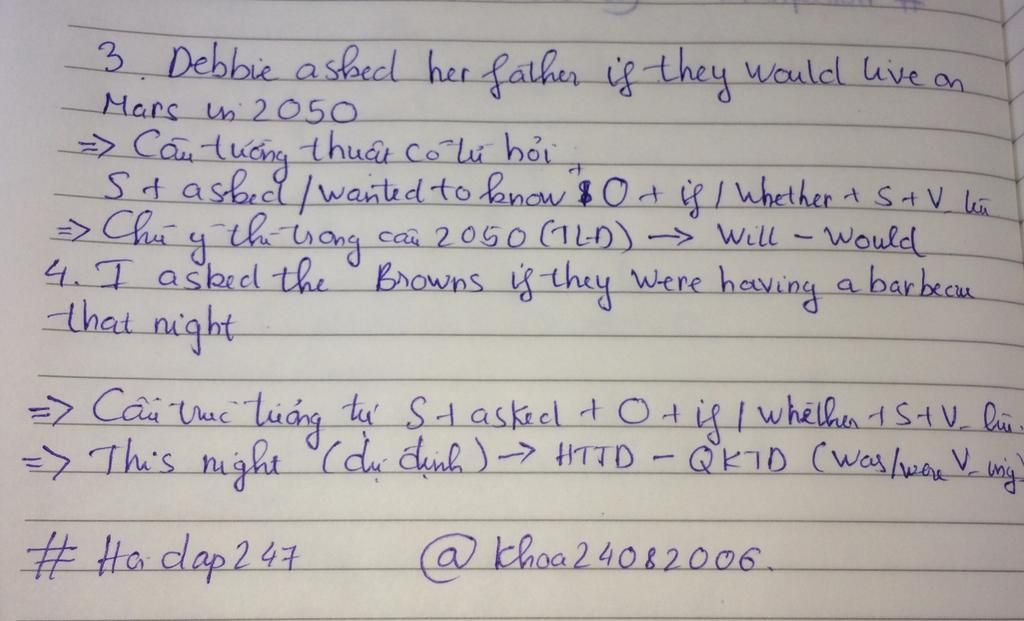 3. Debbie asked her father if they would live on
Mars in 2050
=> Câu tường thuật có từ hỏi
S + asked / wanted to know + O + if / whether + S + V_lùi
=> Chú ý thì trong câu 2050 (TLD) → Will - Would
4. I asked the Browns if they were having a barbecue
that night
=> Cấu trúc tương tự S + asked + O + if / whether + S + V_lùi.
=> This night (dự định) → HTTD - QKTD (was/were V_ing)
# Hoidap247 @khoa24082006.